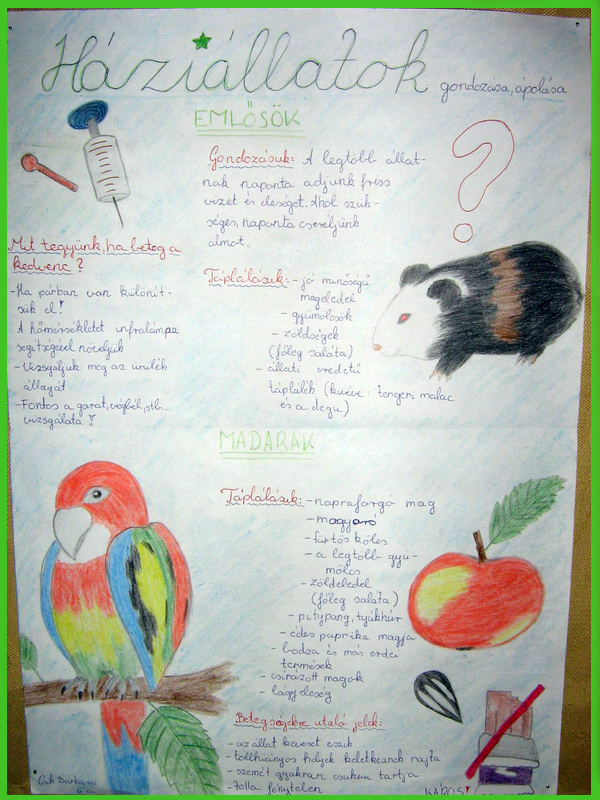 Háziállatok gondozása, ápolása
EMLŐSÖK
Gondozásuk: A legtöbb állat-
nak naponta adjunk friss
vizet és eleséget. Ahol szük-
séges, naponta cseréljünk
almot.
Mit tegyünk, ha beteg a
kedvenc?
-Ha párban van különít-
sük el!
A hőmérsékletet infralámpa
segítségével növeljük
-Vizsgáljuk meg az ürülék
állagát
-Fontos a garat, végbél, stb...
vizsgálata!
Táplálásuk: - jó minőségű
mageledel
- gyümölcsök
- zöldségek
(főleg saláta)
- állati eredetű
táplálék (kivéve: tengeri malac
és a degu)
MADARAK
Táplálásuk: - napraforgó mag
- magyaró
- fürtös köles
- a legtöbb gyü-
mölcs
- zöldeledel
(főleg saláta)
- pitypang, tyúkhúr
- édes paprika magja
- bodza és más erdei
termések
- csíráztott magok
- lágyeleség
Betegségekre utaló jelek:
- az állat keveset eszik
- tollhiányos helyek keletkeznek rajta
- szemét gyakran csukva tartja
- Tolla fénytelen
KÁROS!
Cik Barbara